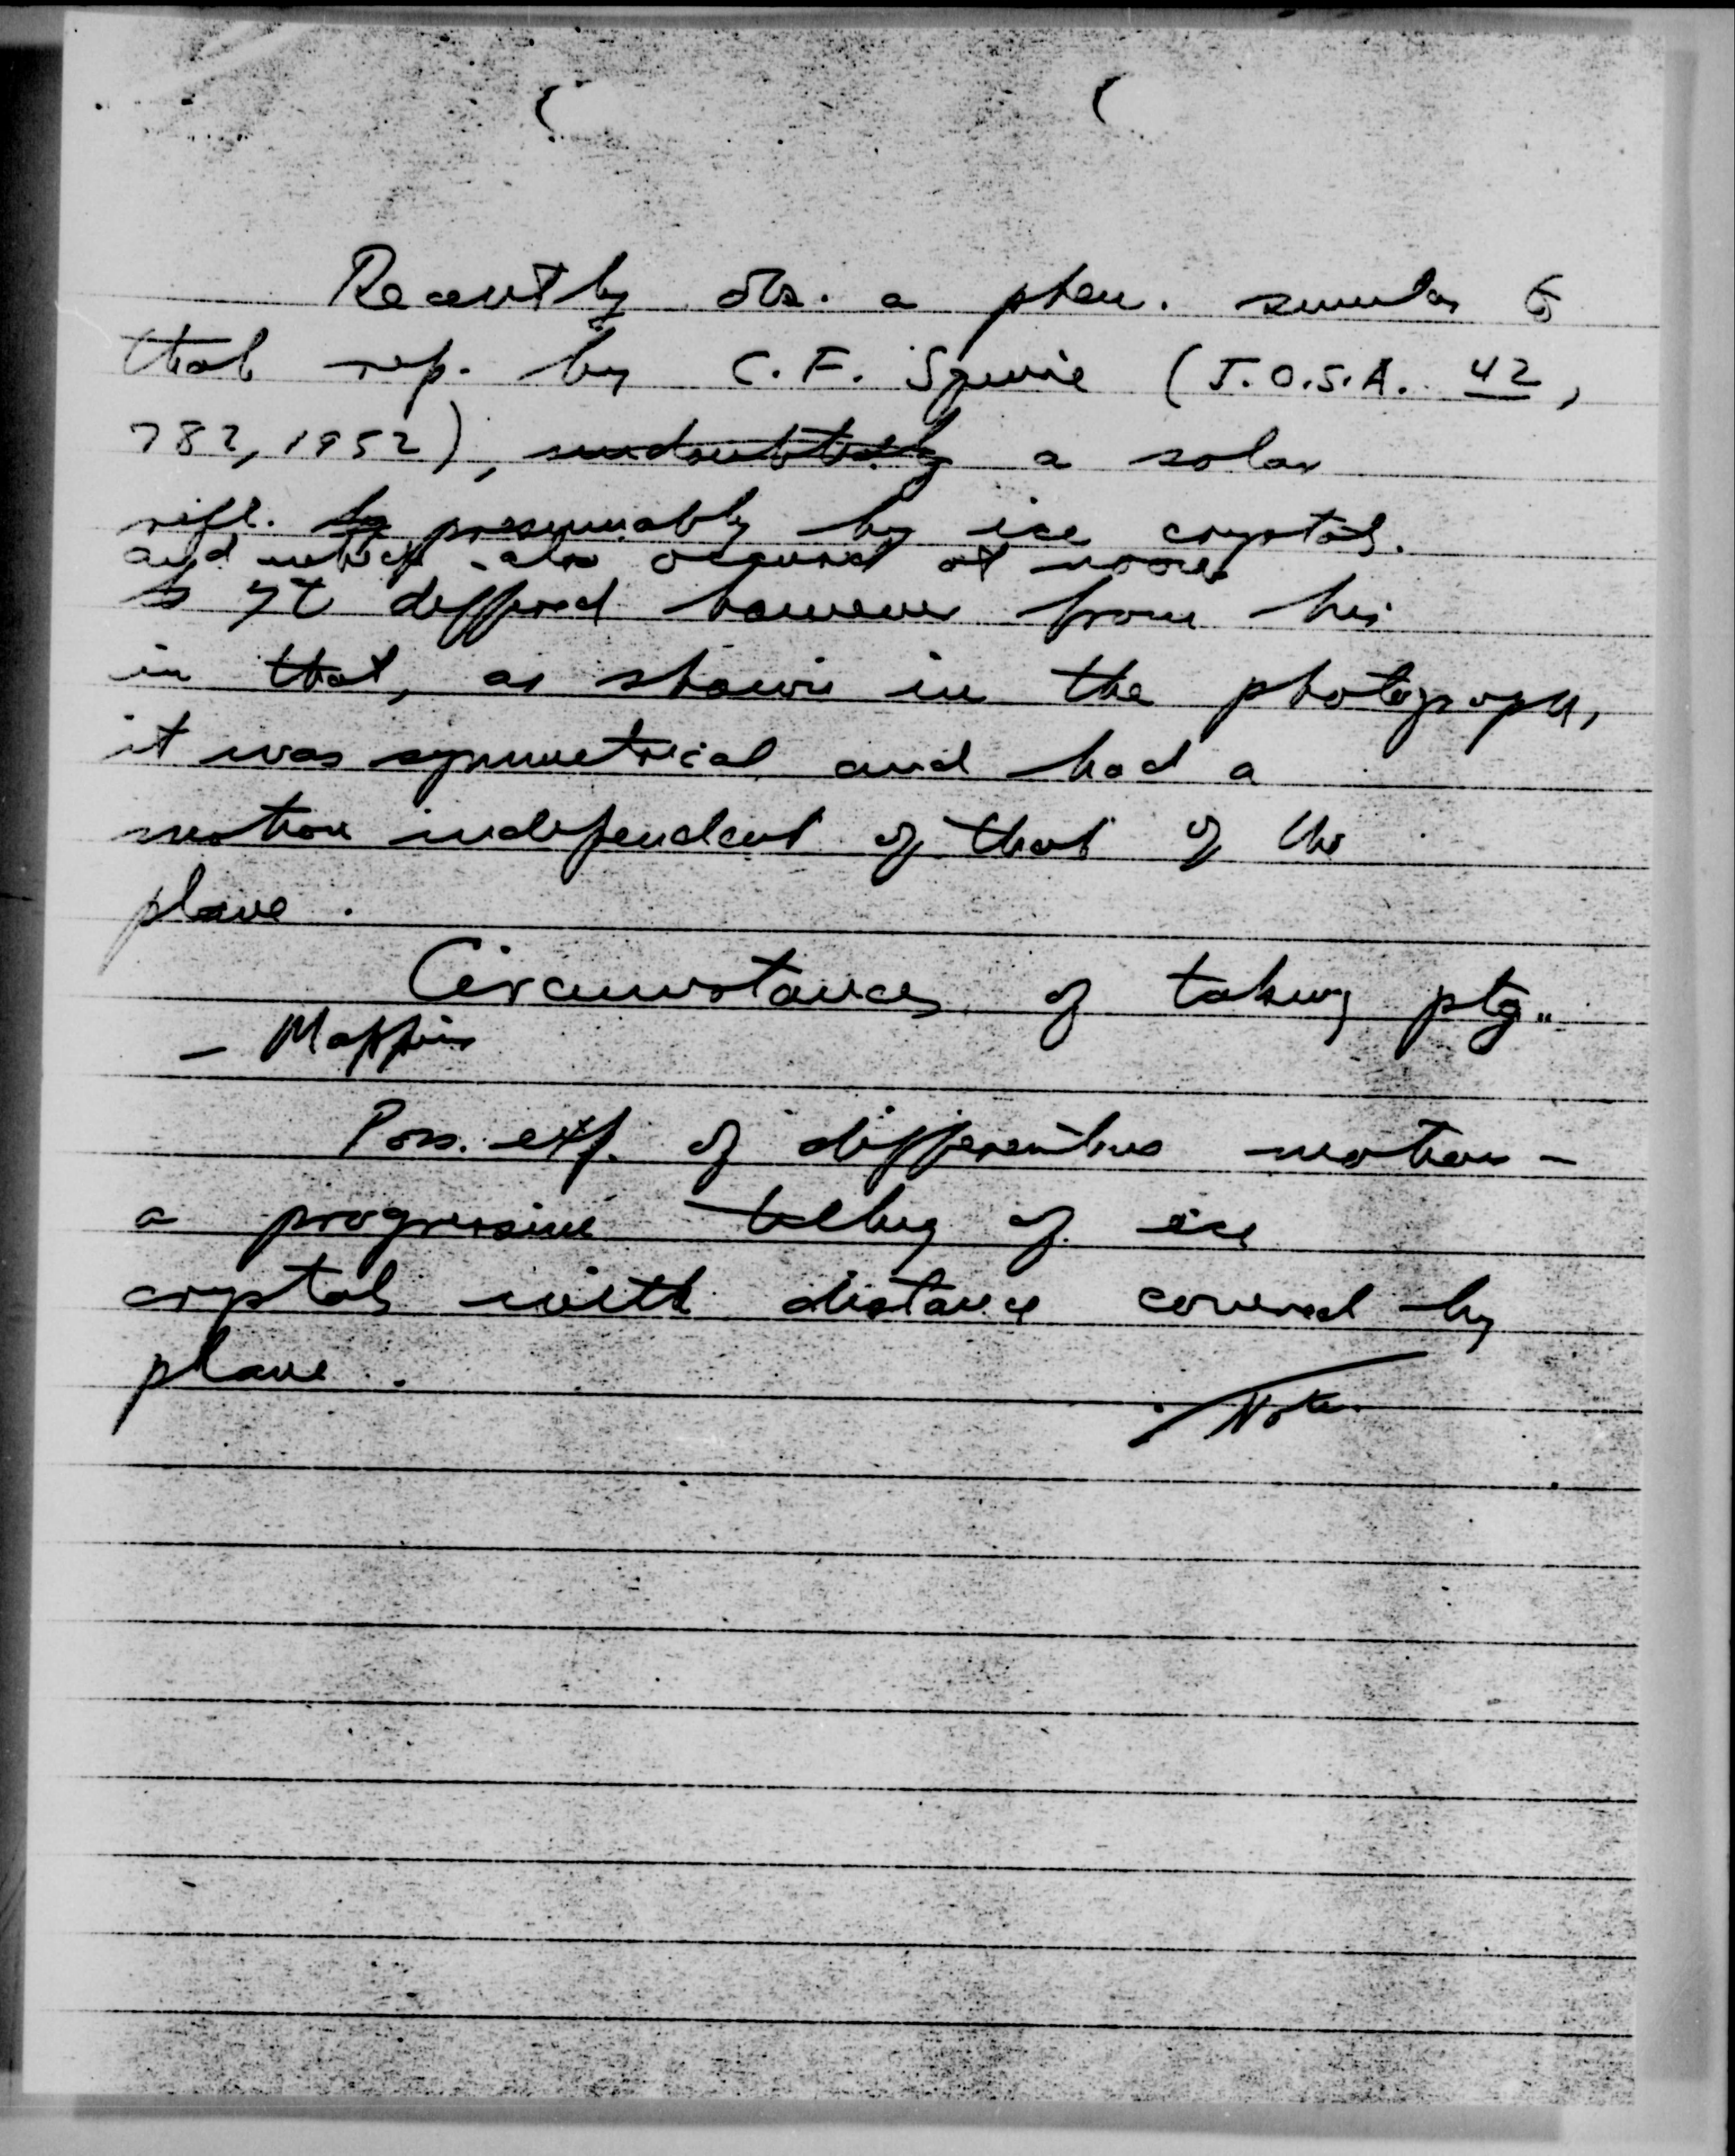 Recently obs. a phen. similar to
that rep. by C.F. Squire (J.O.S.A. 42,
782, 1952), undoubtedly a solar
refl. by presumably by ice crystals.
and which also occurred at noon
It differed however from his
in that, as shown in the photograph,
it was symmetrical and had a
motion independent of that of the
plane.
Circumstances of taking ptg..
—
Poss. exp. of differential motion -
a progressive tilting of ice
crystals with distance covered by
plane.
Note.